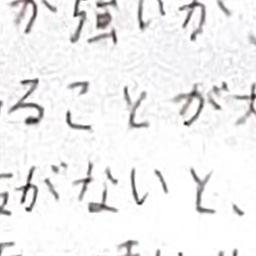 が強いが、
ることが
がないと、